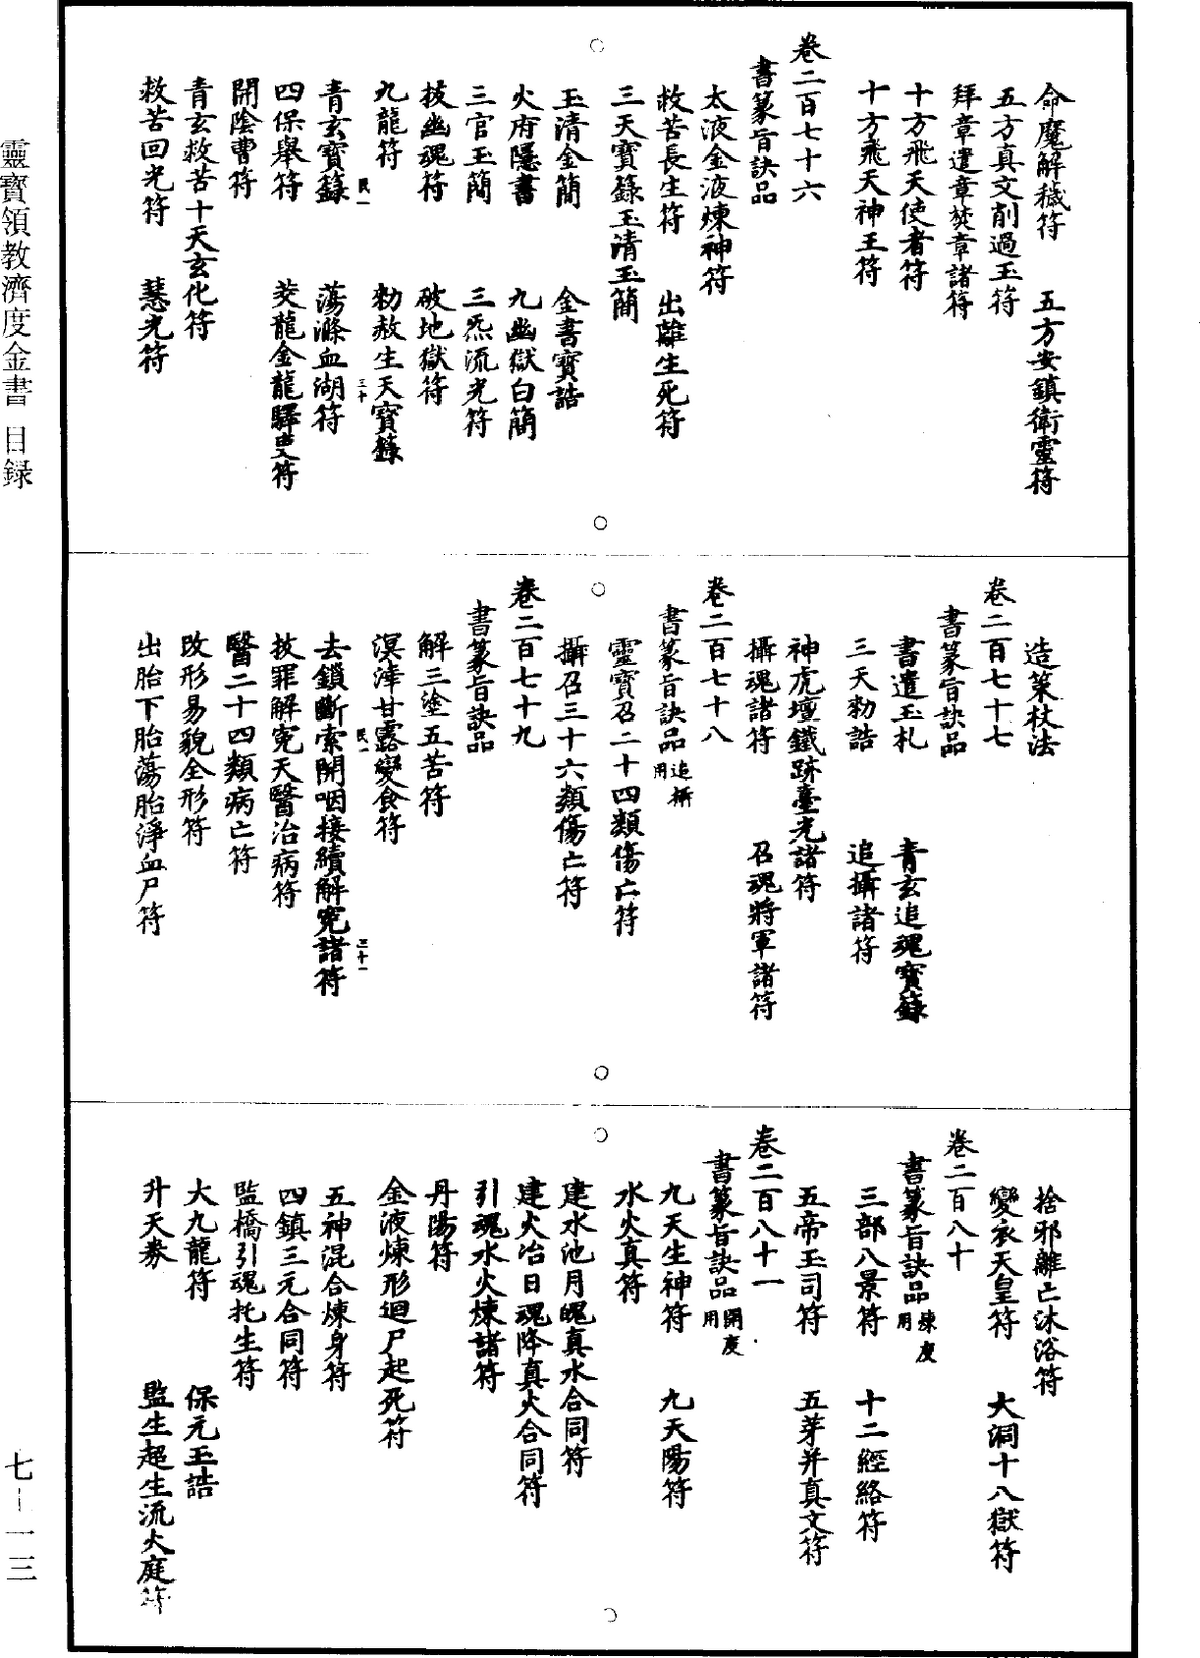 命魔解穢符　五方安鎮衛靈符
五方真文削過玉符
拜章遣章焚章諸符
十方飛天使者符
十方飛天神王符
卷二百七十六
書篆旨訣品
太液金液煉神符
救苦長生符　出離生死符
三天寶籙玉清玉簡
玉清金簡　金書寶誥
火府隱書　九幽獄白簡
三官玉簡　三炁流光符
拔幽魂符　破地獄符
九龍符　勑赦生天寶籙
民一　三十
青玄寶籙　蕩滌血湖符
四保舉符　茭龍金龍驛吏符
開陰曹符
青玄救苦十天玄化符
救苦回光符　慧光符
造策杖法
卷二百七十七
書篆旨訣品
書遣玉札　青玄追魂寶籙
三天勑誥　追攝諸符
神虎壇鐵跡臺光諸符
攝魂諸符　召魂將軍諸符
卷二百七十八
書篆旨訣品追攝用
靈寶召二十四類傷亡符
攝召三十六類傷亡符
卷二百七十九
書篆旨訣品
解三塗五苦符
溟涬甘露變食符
民一　三十一
去鎖斷索開咽接續解寃諸符
拔罪解寃天醫治病符
醫二十四類病亡符
改形易貌全形符
出胎下胎蕩胎淨血尸符
捨邪離亡沐浴符
變衣天皇符　大洞十八獄符
卷二百八十
書篆旨訣品煉度用
三部八景符　十二經絡符
五帝玉司符　五芽并真文符
卷二百八十一
書篆旨訣品開度用
九天生神符　九天陽符
水火真符
建水池月魄真水合同符
建火冶日魂降真火合同符
引魂水火煉諸符
丹陽符
金液煉形迴尸起死符
五神混合煉身符
四鎮三元合同符
監橋引魂托生符
大九龍符　保元玉誥
升天券　監生超生流火庭符
靈寶領教濟度金書　目録
七－一三